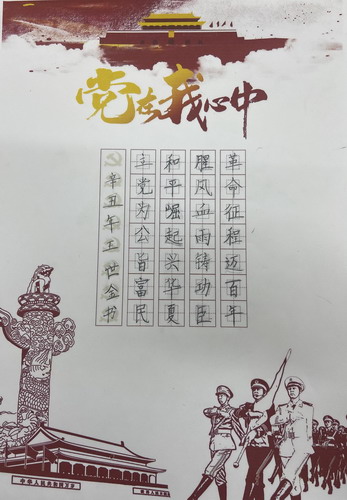 党在我心中
革命征程迈百年
腥风血雨铸功臣
和平崛起兴华夏
主党为公旨富民
辛丑年王世金书
中华人民共和国万岁